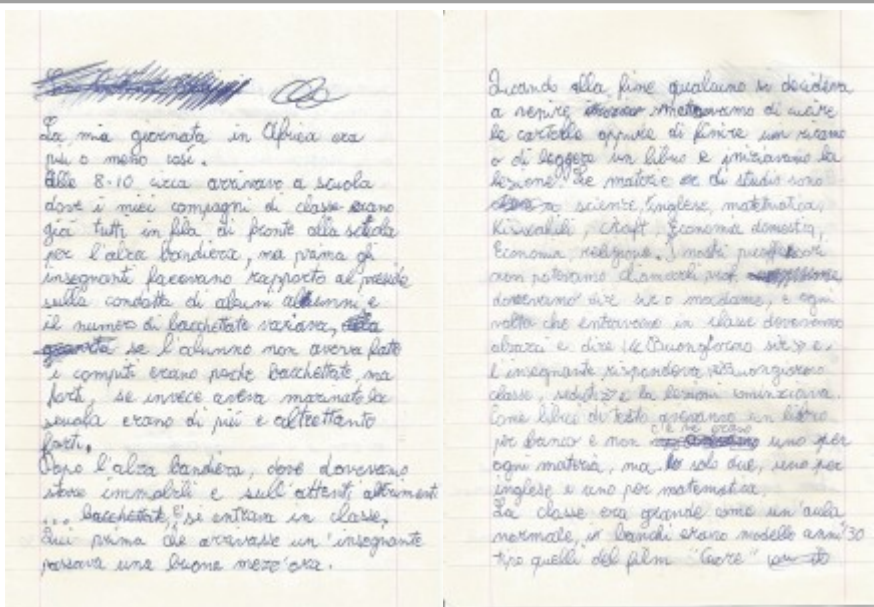 La mia giornata in Africa era
più o meno così.
Alle 8.10 circa arrivavo a scuola
dove i miei compagni di classe erano
già tutti in fila di fronte alla scuola
per l'alza bandiera, ma prima gli
insegnanti facevano rapporto al preside
sulla condotta di alcuni alunni e
il numero di bacchettate variava,
se l'alunno non aveva fatto
i compiti erano poche bacchettate, ma
forti, se invece aveva marinato la
scuola erano di più e altrettanto
forti.
Dopo l'alza bandiera, dove dovevamo
stare immobili e sull'attenti altrimenti
... bacchettate, e si entrava in classe.
Qui prima che arrivasse un'insegnante
passava una buona mezz'ora.
Quando alla fine qualcuno si decideva
a venire smettevamo di cucire
le cartelle oppure di finire un ricamo
o di leggere un libro e iniziavamo la
lezione. Le materie di studio sono
scienze, Inglese, matematica,
Kiswahili, Craft, Economia domestica,
Economia, religione. I nostri professori
non potevamo chiamarli prof.
dovevamo dire sir o madame, e ogni
volta che entravano in classe dovevamo
alzarci e dire << Buongiorno sir >> e
l'insegnante rispondeva << Buongiorno
classe, seduti >> e la lezioni cominciava.
Come libri di testo avevamo un libro
per banco e non ce ne erano uno per
ogni materia, ma solo due, uno per
inglese e uno per matematica.
La classe era grande come un'aula
normale, i banchi erano modello anni '30
tipo quelli del film "Cuore"